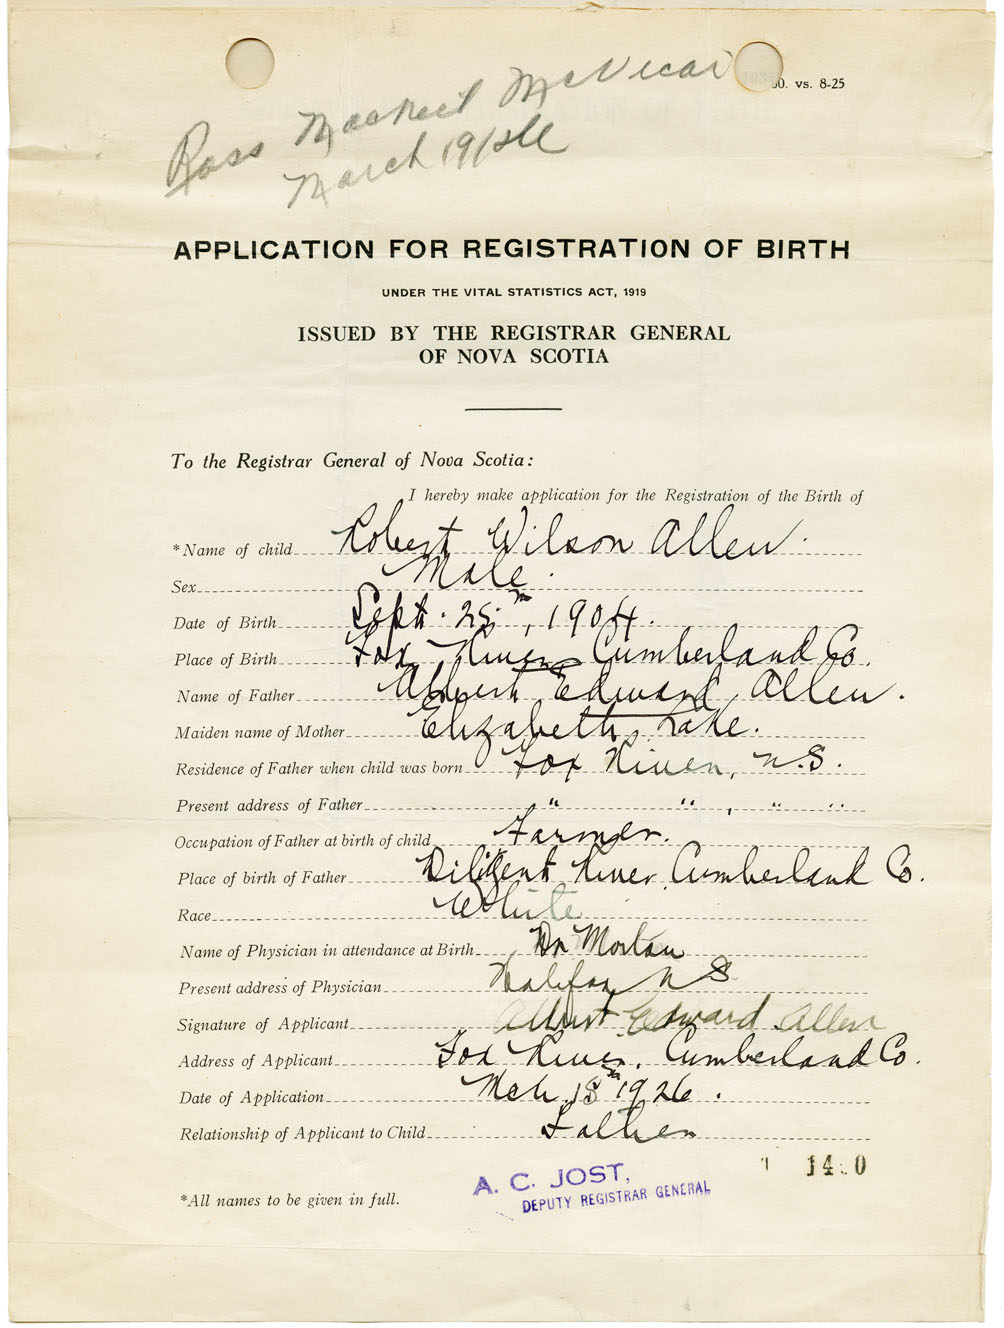 30. vs. 8-25
Ross McVicar
March 19/26
APPLICATION FOR REGISTRATION OF BIRTH
UNDER THE VITAL STATISTICS ACT, 1919
ISSUED BY THE REGISTRAR GENERAL
OF NOVA SCOTIA
To the Registrar General of Nova Scotia:
I hereby make application for the Registration of the Birth of
*Name of child Robert Wilson Allen.
Sex Male.
Date of Birth Sept. 25th, 1904.
Place of Birth Fox River, Cumberland Co.
Name of Father Albert Edward Allen.
Maiden name of Mother Elizabeth Lake.
Residence of Father when child was born Fox River, N.S.
Present address of Father " " , " "
Occupation of Father at birth of child Farmer.
Place of birth of Father Diligent River Cumberland Co.
Race White
Name of Physician in attendance at Birth Dr Morton
Present address of Physician Halifax N S
Signature of Applicant Albert Edward Allen
Address of Applicant Fox River, Cumberland Co.
Date of Application Mch. 18th 1926.
Relationship of Applicant to Child Father
*All names to be given in full.
A. C. JOST,
DEPUTY REGISTRAR GENERAL